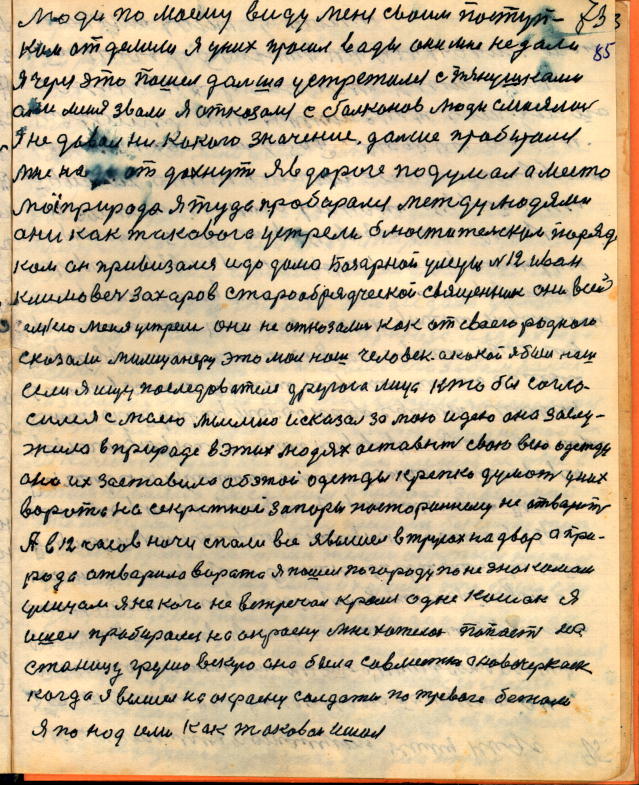 733
85
Люди по моему виду меня своим поступ-
ком отделили я у них просил вады они мне не дали
я через это пошел дальша устретился с пянушками
они меня звали я отказался с балконов люди смиялись
я не давал ни какого значение. далше пробирался
мне на отдохнут я в дороге подумал а место
моё природа я туда пробирался между людями
они как такавога устрели блюстительским поряд
ком он привизался идо дома Базарной улеци №12 иван
климовеч Захаров старообрядческой священник они всей
меня устрели они не отказались как от сваего родного
сказали милицанеру это мол наш человек. а какой я был наш
если я ищу последователя другога лица кто бы согла-
сился с маею мыслию и сказал за мою идею она заслу-
жила в природе в этих людях аставит свою всю одежду
она их заставила об этой одежды крепко думат у них
ворота на секретной запоры постораннему не атварит
А в 12 часов ночи спали все я вышел в трусах на двор а при-
рода атварила варата я пошел по городу по не знакомым
улицам я не кого не встречал кроме одне кошак я
ишел пробирался на окраену мне хотелос попаст на
станицу грушовскую она была савместна с новочеркаск
когда я вышел на окраену солдаты по тревоге бежали
я по над ими как таковой ишол